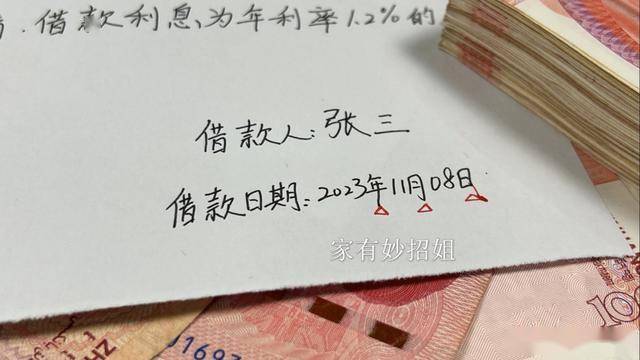 借款利息,为年利率1.2%的
借款人:张三
借款日期:2023年11月08日
家有妙招姐